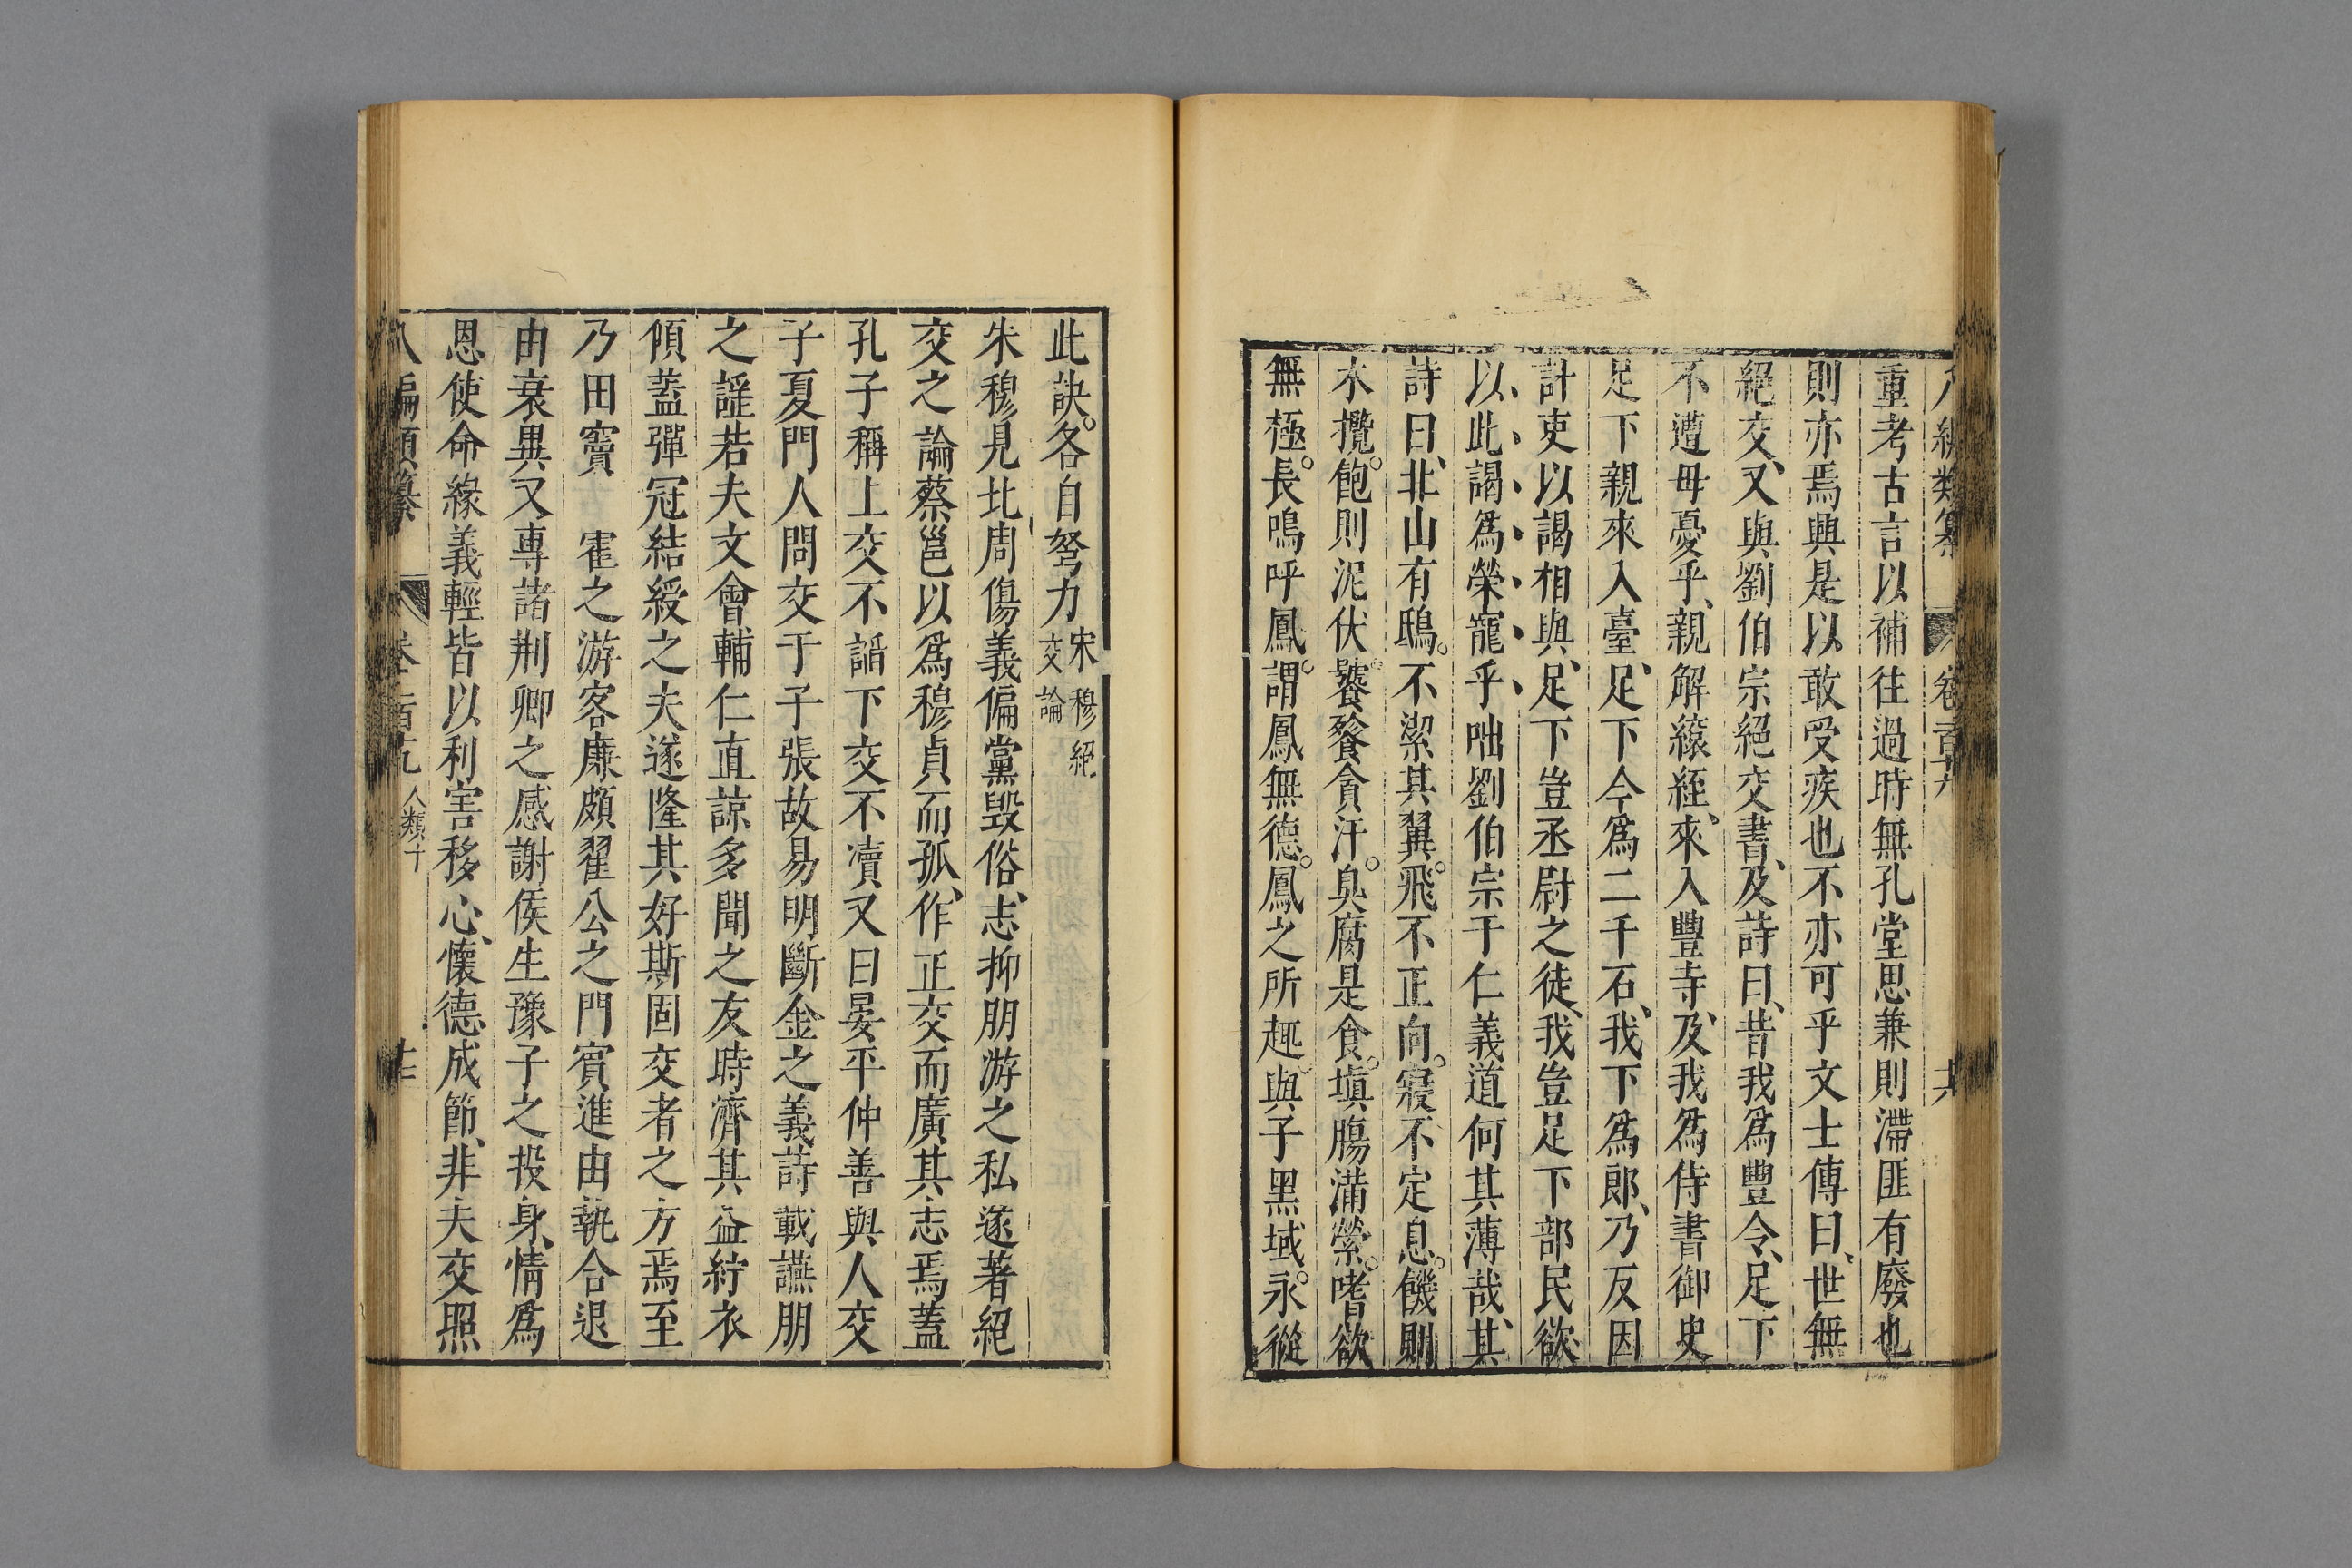 重考古言以補往過時無孔堂思兼則滯匪有廢也
則亦焉興是以敢受疾也不亦可乎文士傳曰、世無
絕交、又與劉伯宗絕交書、及詩曰、昔我爲豐令、足下
不遭母憂乎、親解縗絰、來入豐寺、及我爲侍書御史
足下親來入臺、足下今爲二千石、我下爲郎、乃反因
計吏以謁相與、足下豈丞尉之徒、我豈足下部民、欲
以此謁爲榮寵乎咄劉伯宗于仁義道何其薄哉、其
詩曰、北山有鴟。不潔其翼。飛不正向。寢不定息。饑則
木攬。飽則泥伏。饕餮貪汙。臭腐是食。塡膓滿嗉。嗜欲
無極。長鳴呼鳳。謂鳳無德。鳳之所趣。與子黑域。永從
此訣。各自努力宋穆絕交論
朱穆見北周傷義偏黨毀俗、志抑朋游之私遂著絕
交之論蔡邕以爲穆貞而孤、作正交而廣其志焉蓋
孔子稱上交不謟下交不凟又曰晏平仲善與人交
子夏門人問交于子張故易明斷金之義詩載讌朋
之謡若夫文會輔仁直諒多聞之友時濟其益紵衣
傾蓋彈冠結綬之夫遂隆其好斯固交者之方焉至
乃田竇 霍之游客廉頗翟公之門賓進由執合退
由衰異又專諸荆卿之感謝侯生豫子之投身、情爲
恩使命緣義輕皆以利害移心、懷德成節、非夫交照
八編類纂 卷一百九 人類十